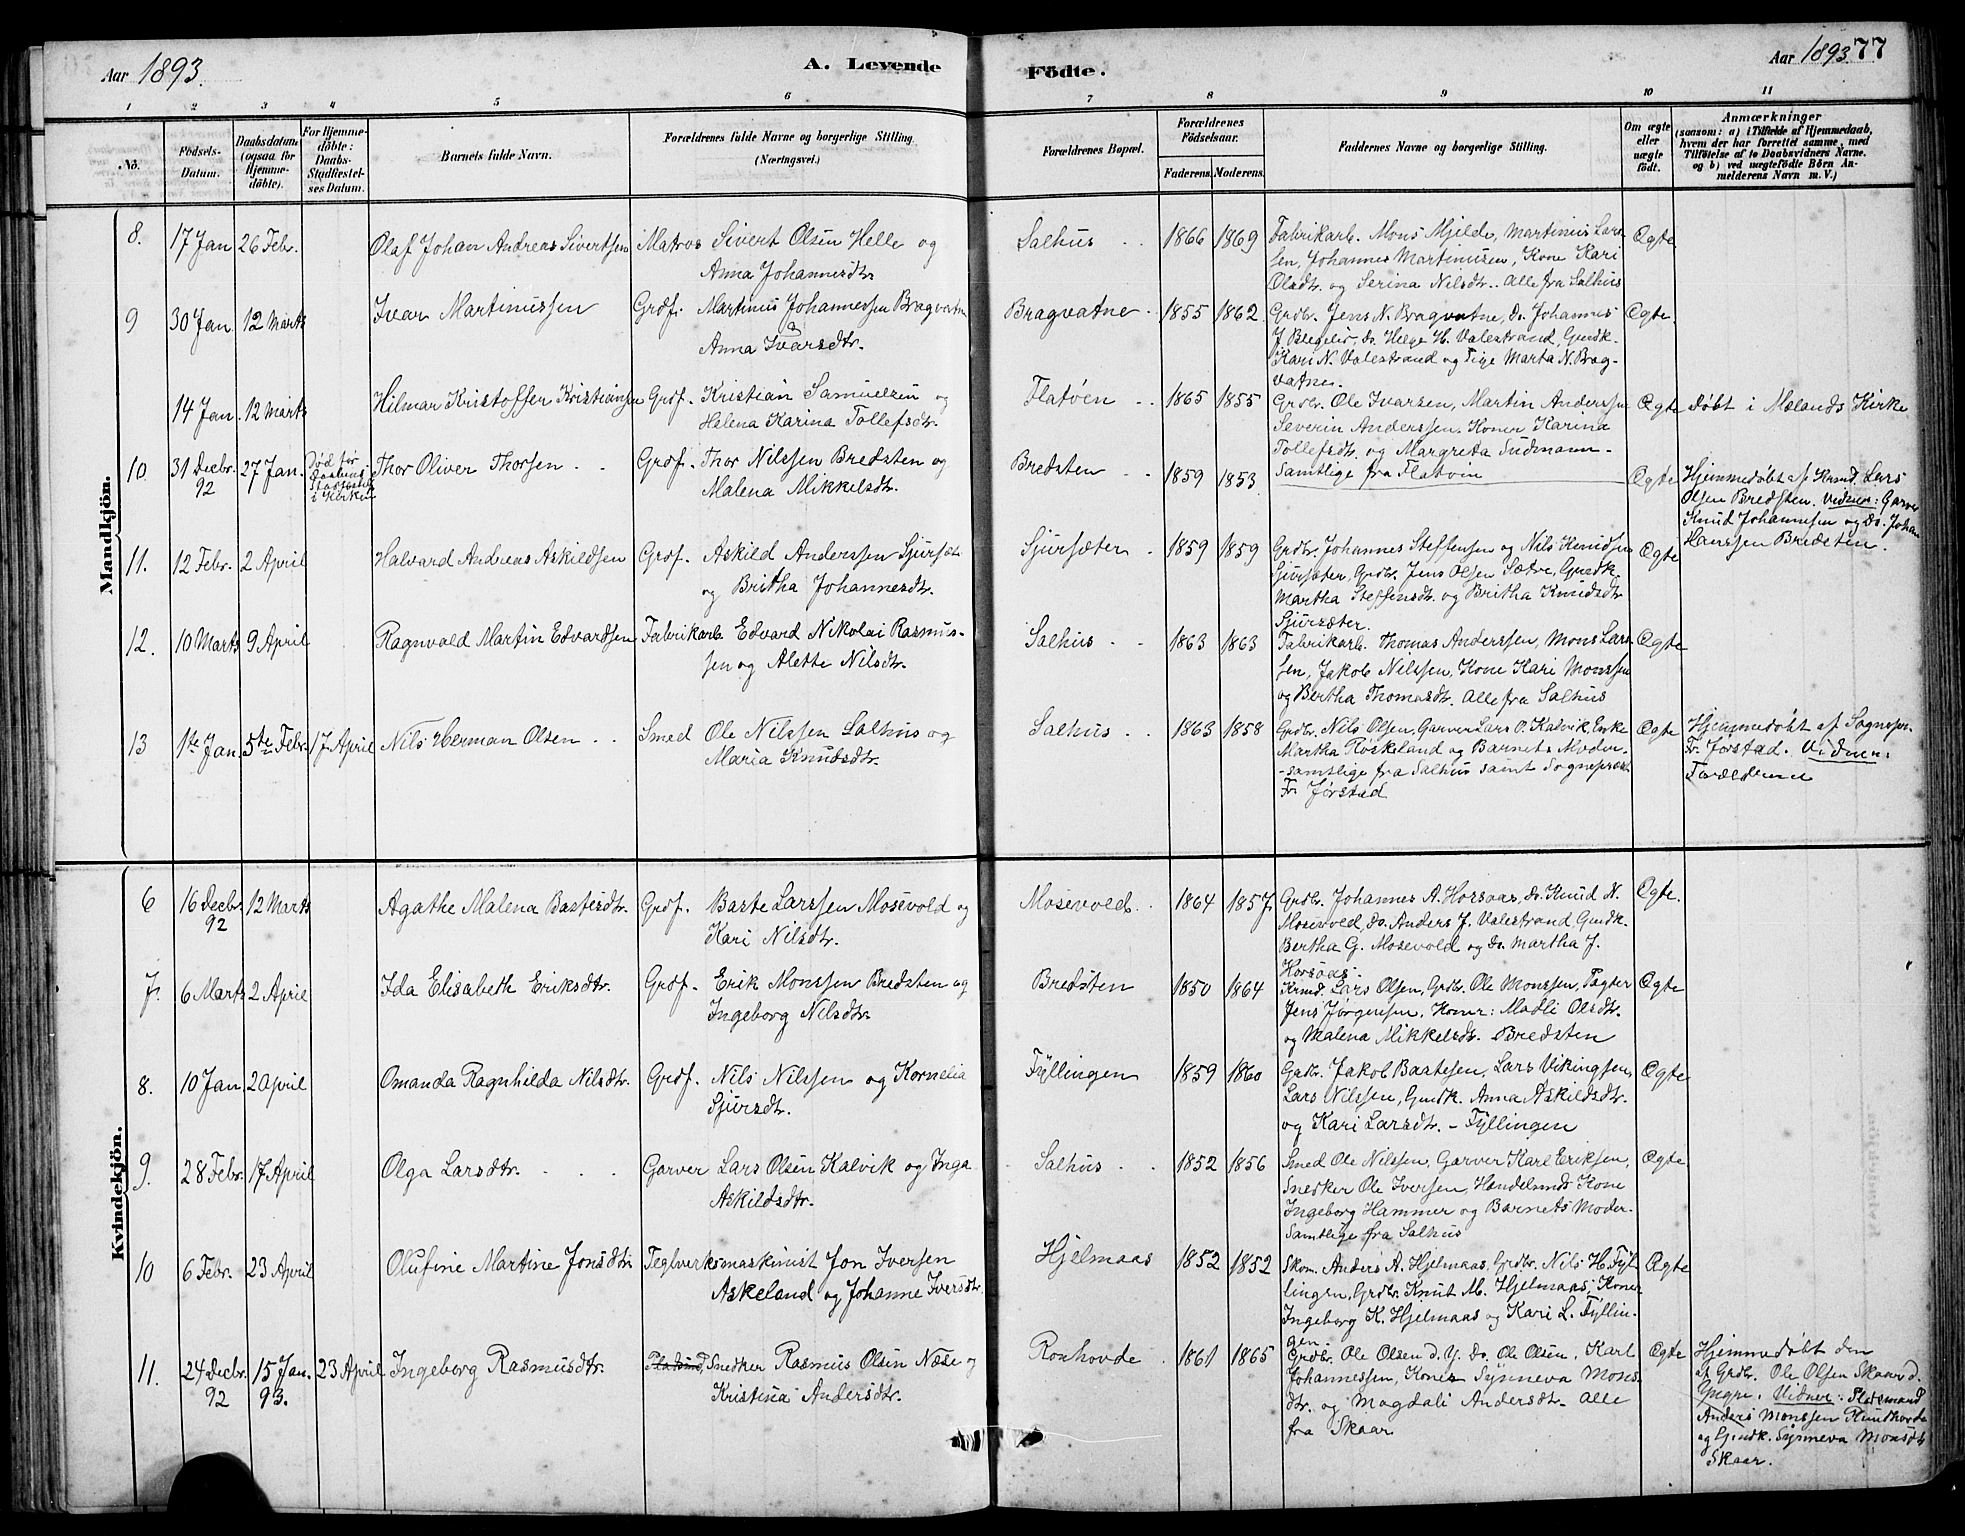 Aar 1893.
A. Levende Födte.
Aar 1893. 77
1 2 3 4 5 6 7 8 9 10 11
No.
Födsels-Datum.
Daabsdatum (ogsaa for Hjemmedöbte).
For Hjemmedöbte: Daabs-Stadfæstelses Datum.
Barnets fulde Navn.
Forældrenes fulde Navne og borgerlige Stilling. (Næringsvei.)
Forældrenes Bopæl.
Forældrenes Födselsaar.
Faderens. Moderens.
Faddernes Navne og borgerlige Stilling.
Om ægte eller uægte födt.
Anmærkninger
(saasom: a) i Tilfælde af Hjemmedaab, hvem der har forrettet samme, med Tilföielse af to Daabsvidners Navne, og b) ved uægtefödte Börn Anmelderens Navn m. V.)
Mandkjön.
8. 17 Jan 26 Febr. Olaf Johan Andreas Sivertsen
Matros Sivert Olsen Helle og
Anna Johannesdtr.
Salhus 1866 1869
Fabrikarb. Mons Mjelde, Martinus Lars-
sen, Johannes Martinusen, Kone Kari
Olsdtr. og Serina Nilsdtr. Alle fra Salhus
Ægte
9 30 Jan 12 Marts Ivar Martinussen
Grdf. Martinus Johannessen Bragvatn
& Anna Ivarsdtr.
Bragvatne 1855 1862
Grdbr. Jens N. Bragvatne, Do. Johannes
Do. Helge H. Valestrand, Gmdk.
Kari N. Valestrand og Pige Marta N. Brag-
vatne.
Ægte.
14 Jan 12 Marts Hilmar Kristoffer Kristiansen
Grdf. Kristian Samuelsen og
Helena Karina Tollefsdtr.
Flatöen 1865 1855
Grdbr. Ole Ivarsen, Martin Anderssen
Severin Anderssen, Koner Karina
Tollefsdtr. og Margreta Sudmann -
Samtlige fra Flatöen
Ægte Döbt i Mælands Kirke
10 31 Decbr. 92 27 Jan. Död för Daabens Stadfestelse i Kirken
Thor Oliver Thorsen
Grdf. Thor Nilssen Bredsten og
Malena Mikkelsdtr.
Bredsten 1859 1853 Ægte
Hjemmedöbt af Krmd. Lars
Olsen Bredsten. Vidner: Garver
Knud Johannesen og Do. Johan
Hanssen Bredsten.
11. 12 Febr. 2 April Halvard Andreas Askildsen
Grdf. Askild Anderssen Sjursæt
og Britha Johannesdtr.
Sjursæter 1859 1859
Grdbr. Johannes Steffensen og Nils Knudsen
Sjursæter, Grdbr. Jens Olsen Sætre, Gmdk.
Martha Steffensdtr. og Britha Knudsdtr
Sjursæter.
Ægte
12. 10 Marts 9 April Ragnvald Martin Edvardsen
Fabrikarb. Edvard Nikolai Rasmus-
sen og Alette Nilsdtr.
Salhus 1863 1863
Fabrikarb. Thomas Anderssen, Mons Lars-
sen, Jakob Nilssen, Kone Kari Monssen
og Bertha Thomasdtr. Alle fra Salhus
Ægte
13 1ste Jan 5te Febr. 17 April Nils Herman Olsen
Smed Ole Nilssen Salhus og
Maria Knudsdtr.
Salhus 1863 1858
Grdbr. Nils Olsen, Garver Lars O. Kalvik, Enke
Martha Röskeland og Barnets Moder -
- samtlige fra Salhus samt Sognepræst
Fr. Jörstad
Ægte
Hjemmedöbt af Sognepr.
Fr. Jörstad. Vidner:
Forældrene
Kvindekjön.
6 16 Decbr. 92 12 Marts Agathe Malena Bastesdtr.
Grdf. Baste Larssen Mosevold og
Kari Nilsdtr.
Mosevold. 1864 1857.
Grdbr. Johannes A. Horsaas, Do. Knud N.
Mosevold, Do. Anders J. Valestrand, Gmdk.
Bertha G. Mosevold og Do. Martha J.
Horsaas.
Ægte.
7. 6 Marts 2 April Ida Elisabeth Eriksdtr.
Grdf. Erik Monssen Bredsten og
Ingeborg Nilsdtr.
Bredsten 1850 1864
Krmd. Lars Olsen, Grdbr. Ole Monssen, Pagter
Jens Jörgensen. Koner: Madli Olsdtr.
og Malena Mikkelsdtr. Bredsten
Ægte
8. 10 Jan 2 April Omanda Ragnhilda Nilsdtr.
Grdf. Nils Nilssen og Kornelia
Sjursdtr.
Fyllingen 1859 1860
Grdbr. Jakob Baatesen, Lars Vikingsen,
Lars Nilssen, Gmdk. Anna Askildsdtr.
og Kari Larsdtr. - Fyllingen
Ægte
9. 28 Febr. 17 April Olga Larsdtr.
Garver Lars Olsen Kalvik og Inga
Askildsdtr.
Salhus 1852 1856
Smed Ole Nilssen, Garver Karl Eriksen,
Snedker Ole Iversen, Handelsmds Kone
Ingeborg Hammer og Barnets Moder -
Samtlige fra Salhus
Ægte
10 6 Febr. 23 April Olufine Martine Jonsdtr
Teglverksmaskinist Jon Iversen
Askeland og Johanne Iversdtr.
Hjelmaas 1852 1852
Skom. Anders A. Hjelmaas, Grdbr. Nils H. Fyl-
lingen, Grdbr. Knut M. Hjelmaas, Koner
Ingeborg K. Hjelmaas og Kari L. Fyllin-
gen
Ægte
11. 24 Decbr. 92 15 Jan. 93. 23 April Ingeborg Rasmusdtr.
Pladsmd, Snedker Rasmus Olsen Næse og
Kristina Andersdtr.
Roxhovde 1861 1865
Grdbr. Ole Olsen d. Y. Do. Ole Olsen. Karl
Johannessen, Koner Synneva Mons-
dtr. og Magdali Andersdtr. Alle
fra Skaar.
Ægte
Hjemmedöbt den
af Grdbr. Ole Olsen Skaar d.
Yngre. Vidner: Pladsmand
Anders Monssen
og Gmdk. Synneva Monsdtr
Skaar.